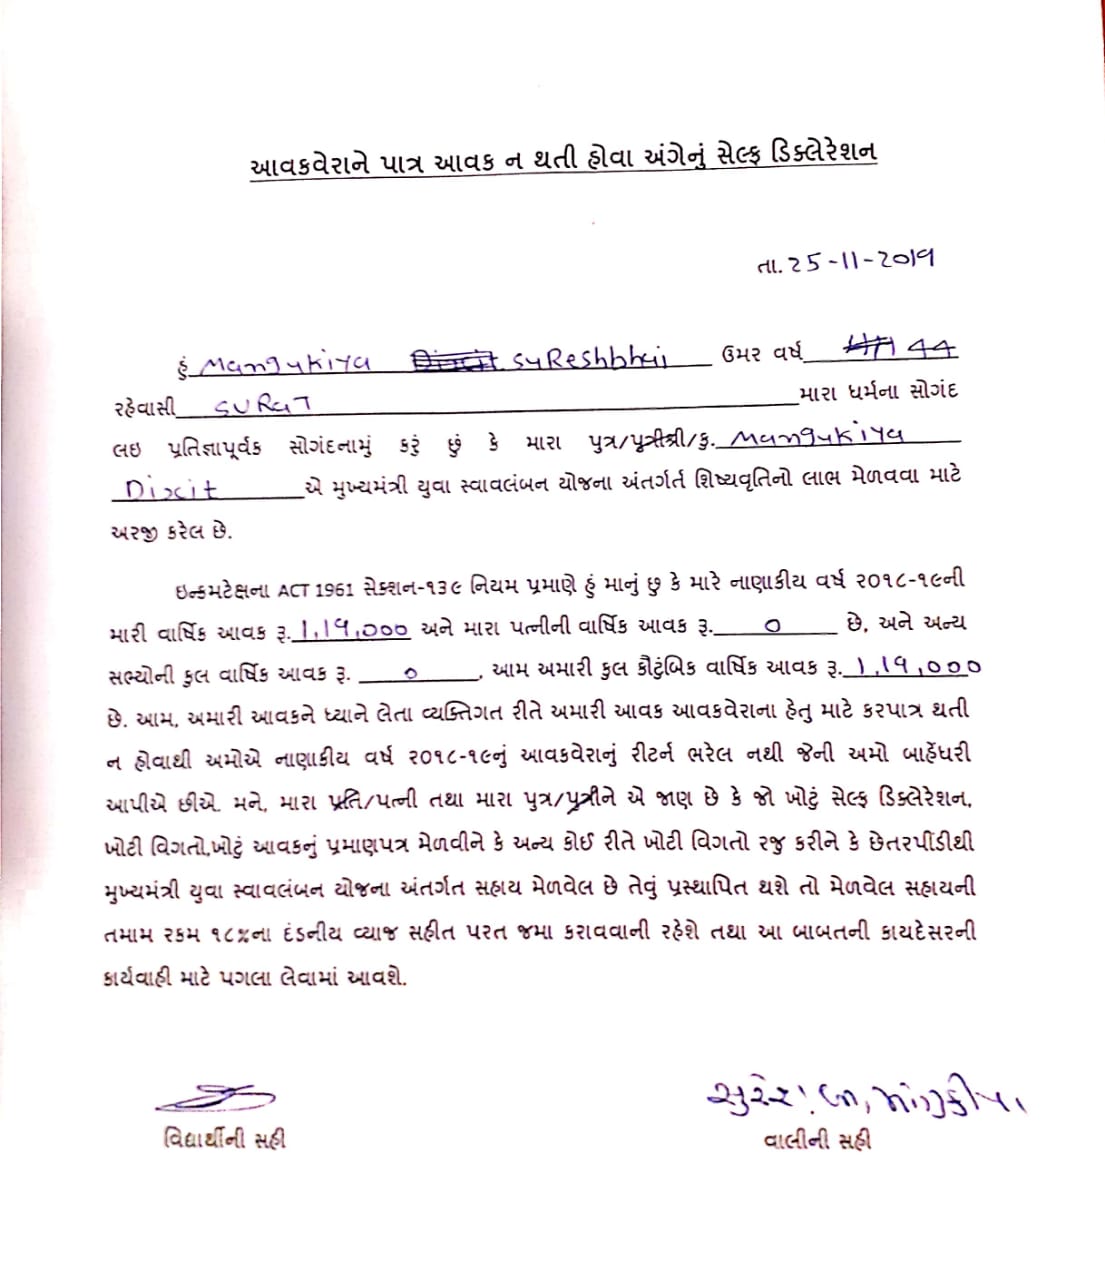 આવકવેરાને પાત્ર આવક ન થતી હોવા અંગેનું સેલ્ફ ડિક્લેરેશન
તા. 25-11-2019
હું Mangukiya Dixit sureshbhai ઉમર વર્ષ 44
રહેવાસી SURAT મારા ધર્મના સોગંદ
લઇ પ્રતિજ્ઞાપૂર્વક સોગંદનામું કરૂં છું કે મારા પુત્ર/પુત્રીશ્રી/કુ. Mangukiya
Dixit એ મુખ્યમંત્રી યુવા સ્વાવલંબન યોજના અંતર્ગર્ત શિષ્યવૃતિનો લાભ મેળવવા માટે
અરજી કરેલ છે.
ઇન્કમટેક્ષના ACT 1961 સેક્શન-૧૩૯ નિયમ પ્રમાણે હું માનું છુ કે મારે નાણાકીય વર્ષ ૨૦૧૮-૧૯ની
મારી વાર્ષિક આવક રૂ. 1,19,000 અને મારા પત્નીની વાર્ષિક આવક રૂ. 0 છે, અને અન્ય
સભ્યોની કુલ વાર્ષિક આવક રૂ. 0 , આમ અમારી કુલ કૌટુંબિક વાર્ષિક આવક રૂ. 1,19,000
છે. આમ, અમારી આવકને ધ્યાને લેતા વ્યક્તિગત રીતે અમારી આવક આવકવેરાના હેતુ માટે કરપાત્ર થતી
ન હોવાથી અમોએ નાણાકીય વર્ષ ૨૦૧૮-૧૯નું આવકવેરાનું રીટર્ન ભરેલ નથી જેની અમો બાહેંધરી
આપીએ છીએ. મને, મારા પ્રતિ/પત્ની તથા મારા પુત્ર/પુત્રીને એ જાણ છે કે જો ખોટું સેલ્ફ ડિક્લેરેશન,
ખોટી વિગતો,ખોટું આવકનું પ્રમાણપત્ર મેળવીને કે અન્ય કોઈ રીતે ખોટી વિગતો રજુ કરીને કે છેતરપીંડીથી
મુખ્યમંત્રી યુવા સ્વાવલંબન યોજના અંતર્ગત સહાય મેળવેલ છે તેવું પ્રસ્થાપિત થશે તો મેળવેલ સહાયની
તમામ રકમ ૧૮%ના દંડનીય વ્યાજ સહીત પરત જમા કરાવવાની રહેશે તથા આ બાબતની કાયદેસરની
કાર્યવાહી માટે પગલા લેવામાં આવશે.
વિદ્યાર્થીની સહી
વાલીની સહી